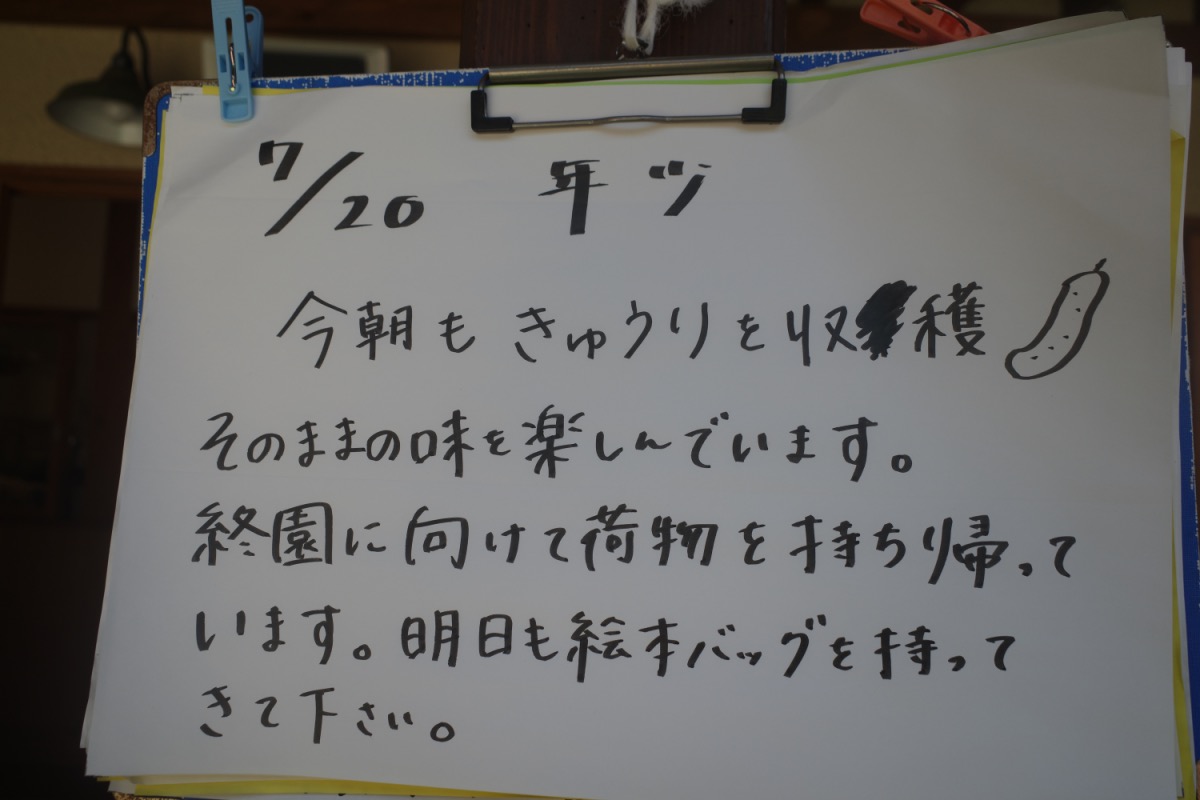 7/20 年少
今朝もきゅうりを収穫
そのままの味を楽しんでいます。
終園に向けて荷物を持ち帰って
います。明日も絵本バッグを持って
きて下さい。